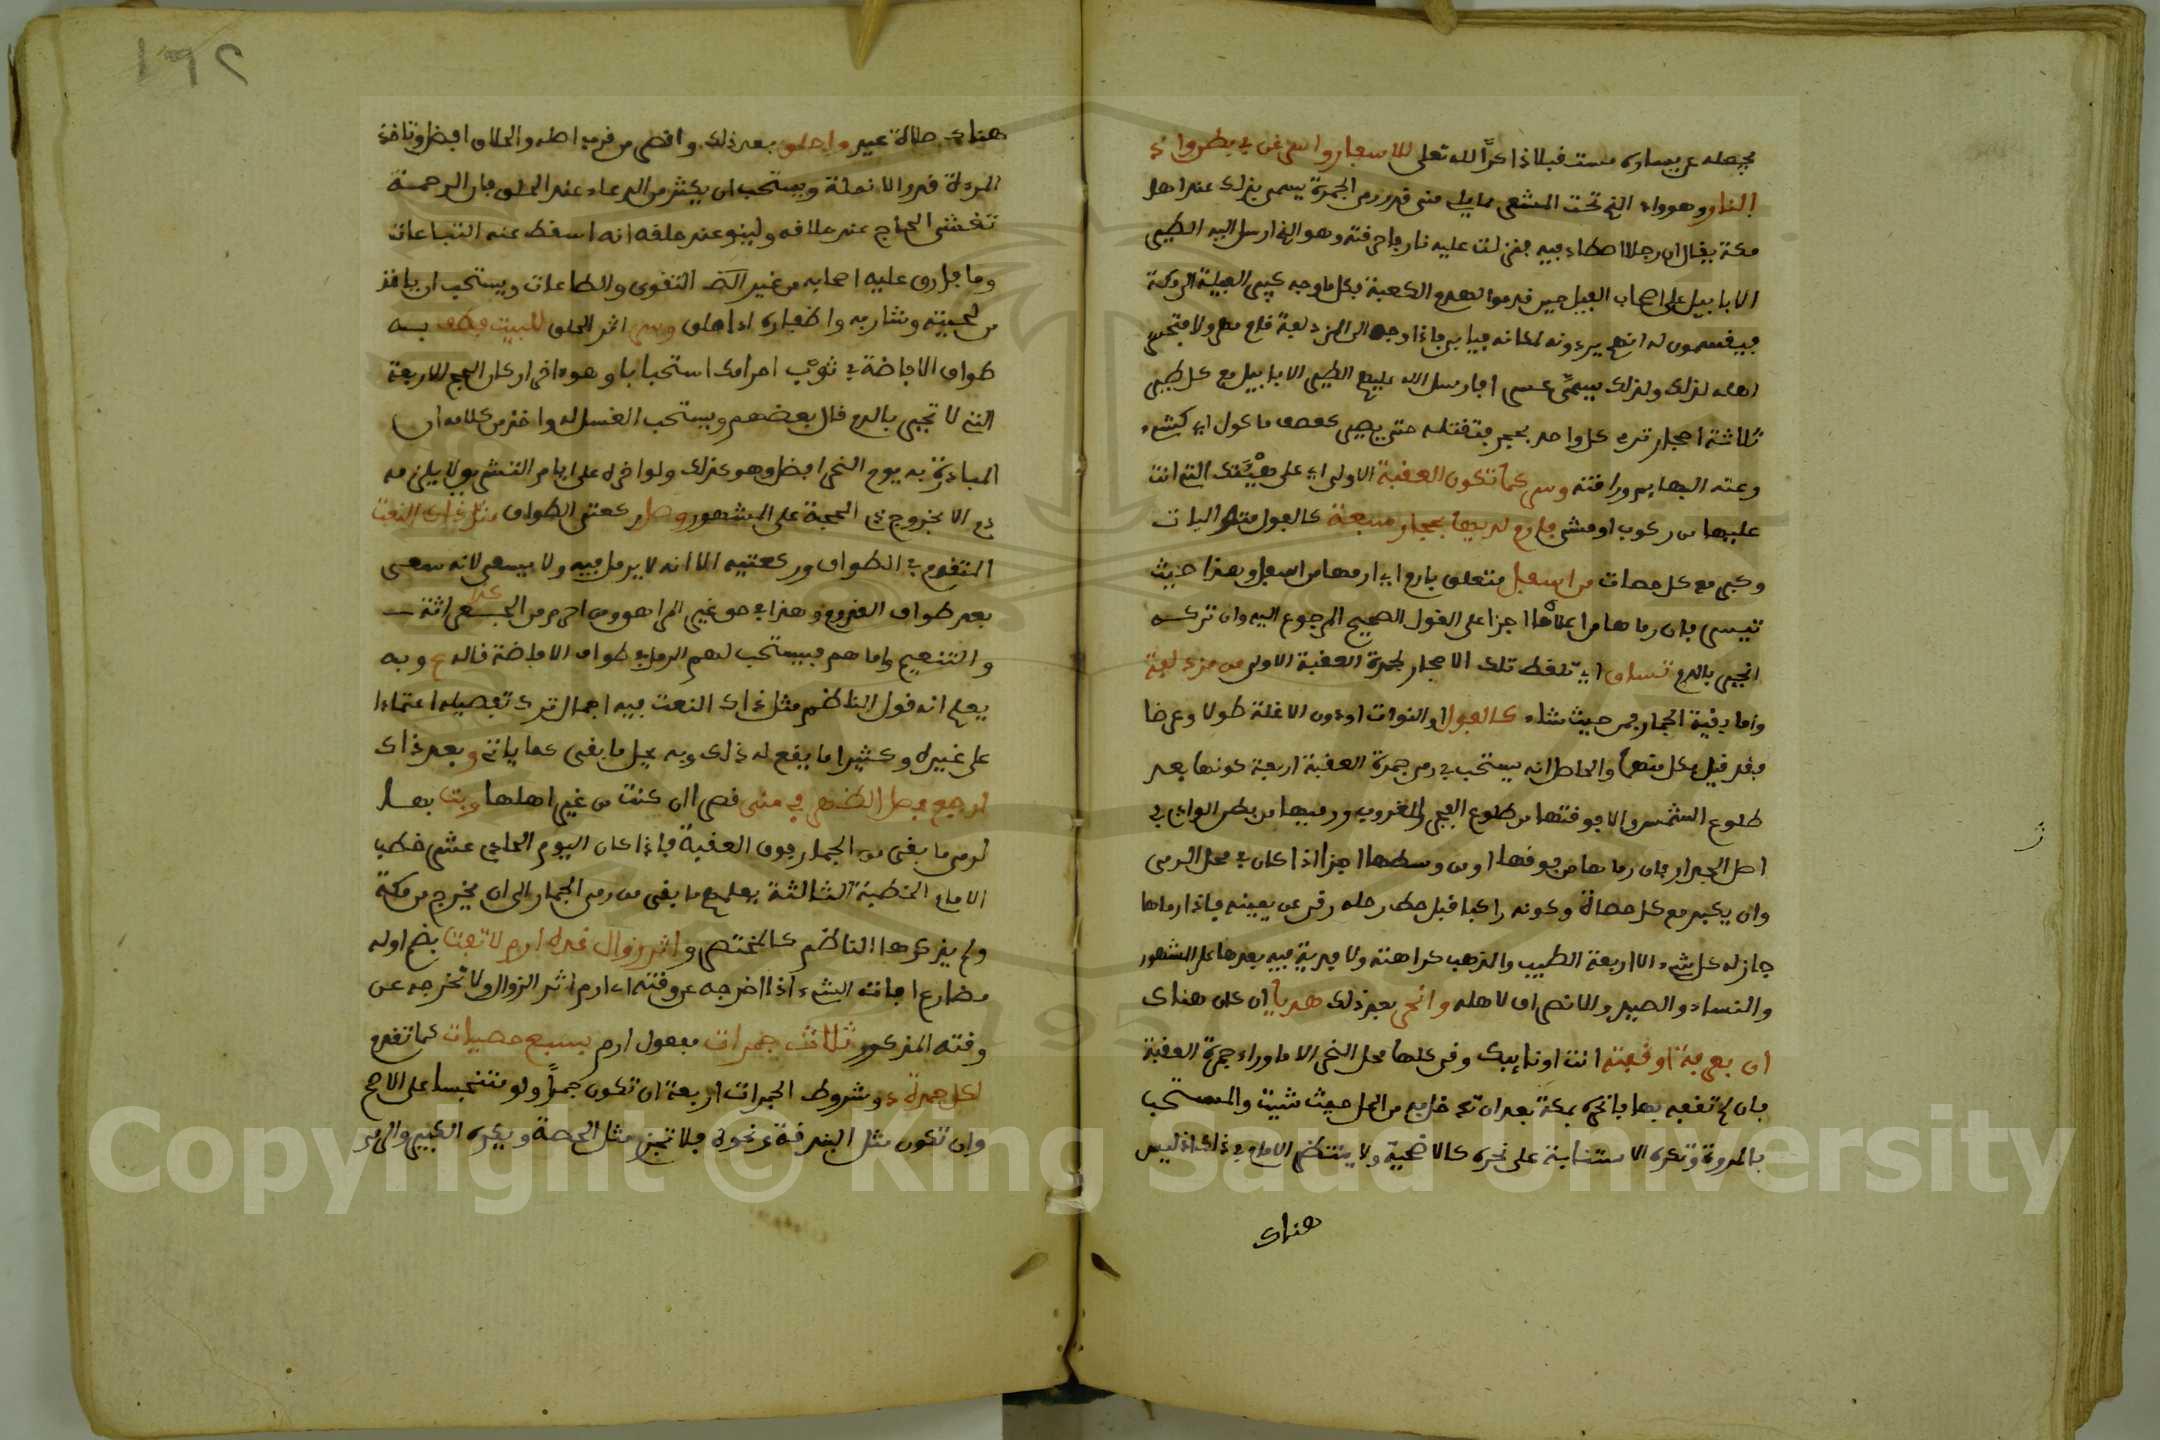 يجعله عن يساره مستقبلا ذاكرا لله تعلى للاسفار واسرعن في بطن وادي
النار وهو واد الذي تحت المشعر مما يلي منى قدر رمي الجمرة يسمى بذلك عند اهل
مكة يقال ان رجلا اصطاد فيه فنزلت عليه نار فاحرقته وهو الذي ارسل اليه الطير
الابابيل على اصحاب الفيل حين قدموا لهدم الكعبة فكلما وجه كبير الفيلة الى مكة
فيقسمون له انهم يردونه لمكانه فيابى فاذا وجه الى المزدلفة قام
اهله لذلك ولذلك يسمى محسر افارسل الله عليهم الطير الابابيل مع كل طير
ثلاثة احجار ترمي كل واحد بحجر فتقتله حتى يصير كعصف ماكول اي كشيء
وعته البهايم وراثته وسر كما تكون العقبة الاولى اي على هيئتك التي انت
عليها من ركوب او مشي فارم لديها بحجار سبعة كالفول
وكبر مع كل حصات من اسفل متعلق بارم اي ارمها من اسفل وهذا حيث
تيسر فان رماها من اعلاها اجزا على القول الصحيح المرجوع اليه وان تركه
انجبر بالدم تساق اي تلقط تلك الاحجار لجمرة العقبة الاولى من مزدلفة
واما بقية الجمار فمن حيث شاء كالفول او النوات او دون الانملة طولا وعرضا
فقد قيل بكل منهما والحاصل انه يستحب في رمي جمرة العقبة اربعة كونها بعد
طلوع الشمس والا فوقتها من طلوع الفجر للغروب ورميها من بطن الوادي
اصل الجدار فان رماها من فوقها او من وسطها اجزا اذا كان في محل الرمي
وان يكبر مع كل حصاة وكونه راكبا قبل حط رحله ومر عن يمينه فاذا رماها
جاز له كل شيء الا اربعة الطيب والمذهب كراهته ولا فدية فيه بعدها على المشهور
والنساء والصيد والانصراف لاهله وانحر بعد ذلك هديا ان كان هناك
ان بعرفة اوقفته انت او نايبك وفي كلها محل النحر الا ما وراء جمرة العقبة
فان لم تقف به بها فانحره بمكة بعد ان تدخل به من الحل حيث شيت والمستحب
بالمروة وتكره الاستنابة على نحره كالاضحية ولا ينتظر الامام في ذلك اذ ليس
هناك
١٩٢
هناك صلاة عيد واحلق بعد ذلك واقصر من قرب اصله والحلاق افضل وتاخذ
المرءة قدر الانملة ويستحب ان يكثر من الدعاء عند الحلق فان الرحمة
تغشى الحاج عند حلاقه ولينو عند حلقه انه اسقط عنه التباعات
وما فارق عليه اصحابه من غير التقوى والطاعات ويستحب ان ياخذ
من لحيته وشاربه واظفاره اذا حلق وسر اثر الحلق للبيت فطف به
طواف الافاضة في ثوبي احرامك استحبابا وهو اخر اركان الحج الاربعة
التي لا تجبر بالدم قال بعضهم ويستحب الغسل له واخذ من كلامه ان
المبادرة به يوم النحر افضل وهو كذلك ولو اخره على ايام التشريق لا يلزمه
دم الا بخروج ذي الحجة على المشهور وصل ركعتي الطواف مثل ذاك النعت
المتقدم في الطواف وركعتيه الا انه لا يرمل فيه ولا يسعى لانه سعى
بعد طواف القدوم وهذا في حق غير المراهق ومن احرم من الجعرانة
والتنعيم واما هم فيستحب لهم الرمل في طواف الافاضة قاله ع وبه
يعلم ان قول الناظم مثل ذاك النعت فيه اجمال ترك تفصيله اعتمادا
على غيره وكثيرا ما يقع له ذلك وبه يحل ما بقي كما ياتي وبعد ذاك
ارجع فصل الظهر في منى قصرا ان كنت من غير اهلها وبت بها
لرمي ما بقي من الجمار فوق العقبة فاذا كان اليوم الحادي عشر خطب
الامام الخطبة الثالثة يعلمهم ما بقي من رمي الجمار الى ان يخرج من مكة
ولم يذكرها الناظم كالمختصر واثر زوال غده ارم لا تفت بضم اوله
مضارع افات الشيء اذا اخرجه عن وقته اي ارم اثر الزوال ولا تخرجه عن
وقته المذكور ثلاث جمرات مفعول ارم بسبع حصيات كما تقدم
لكل جمرة وشروط الجمرات اربعة ان تكون حجرا ولو متنجسا على الاصح
وان تكون مثل البندقة ونحوه فلا تجزي مثل الحمصة ويكره الكبير والرمي